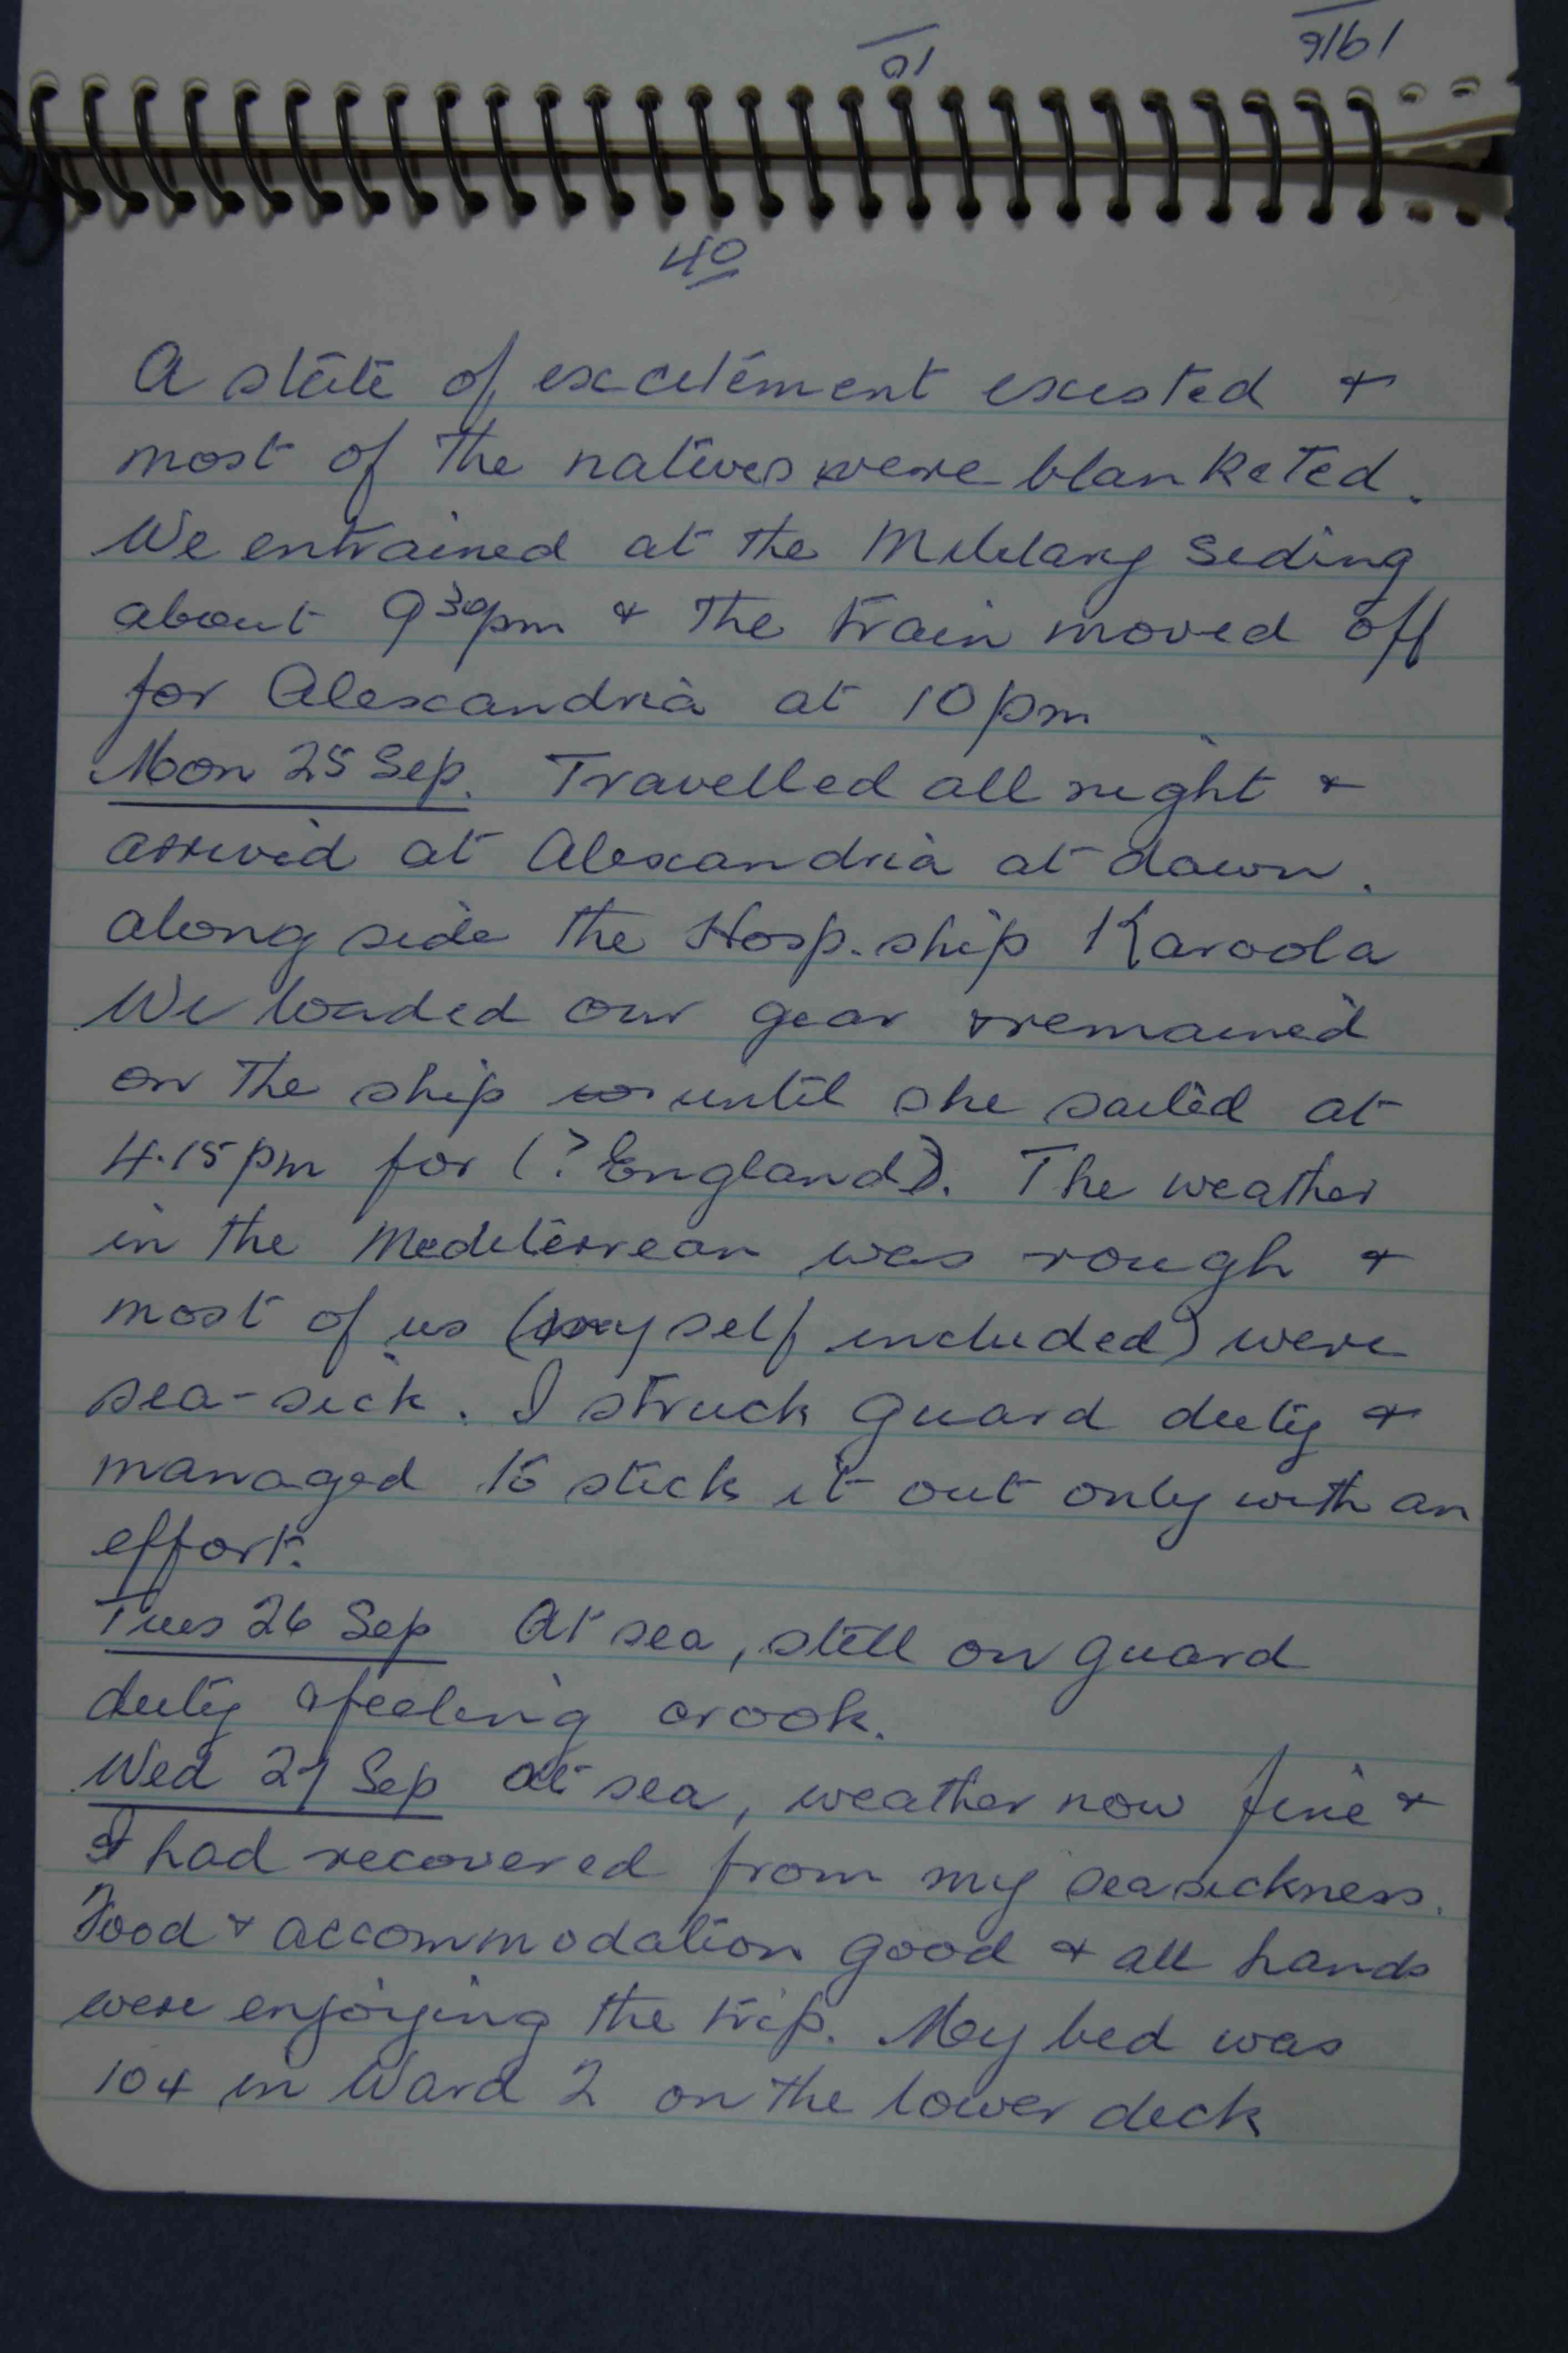 1916
10
40
A state of excitement existed &
most of the natives were blanketed.
We entrained at the Military Siding
about 9³⁰pm & the train moved off
for Alexandria at 10pm
Mon 25 Sep. Travelled all night &
arrived at Alexandria at dawn.
along side the Hosp. ship Karoola
We loaded our gear & remained
on the ship until she sailed at
4.15pm for (? England). The weather
in the Mediterrean was rough &
most of us (myself included) were
sea-sick. I struck guard duty &
managed to stick it out only with an
effort.
Tues 26 Sep At sea, still on guard
duty & feeling crook.
Wed 27 Sep At sea, weather now fine &
I had recovered from my seasickness.
Food & accommodation good & all hands
were enjoying the trip. My bed was
104 in Ward 2 on the lower deck